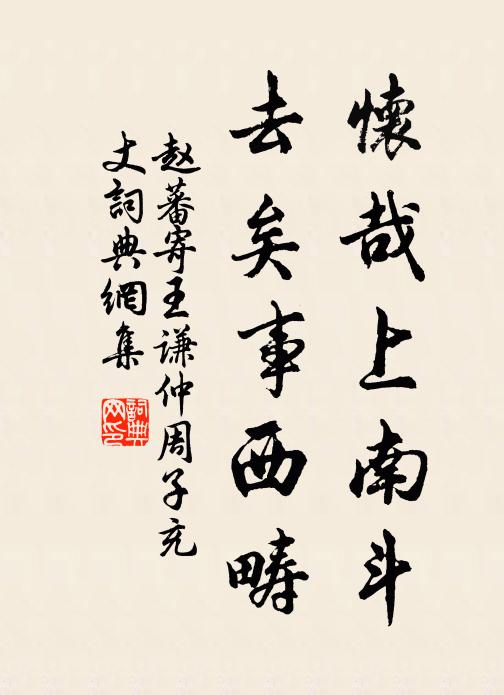 懷哉上南斗
去矣事西疇
赵蕃寄王谦仲周子充
丈詞典網集
詞典網印